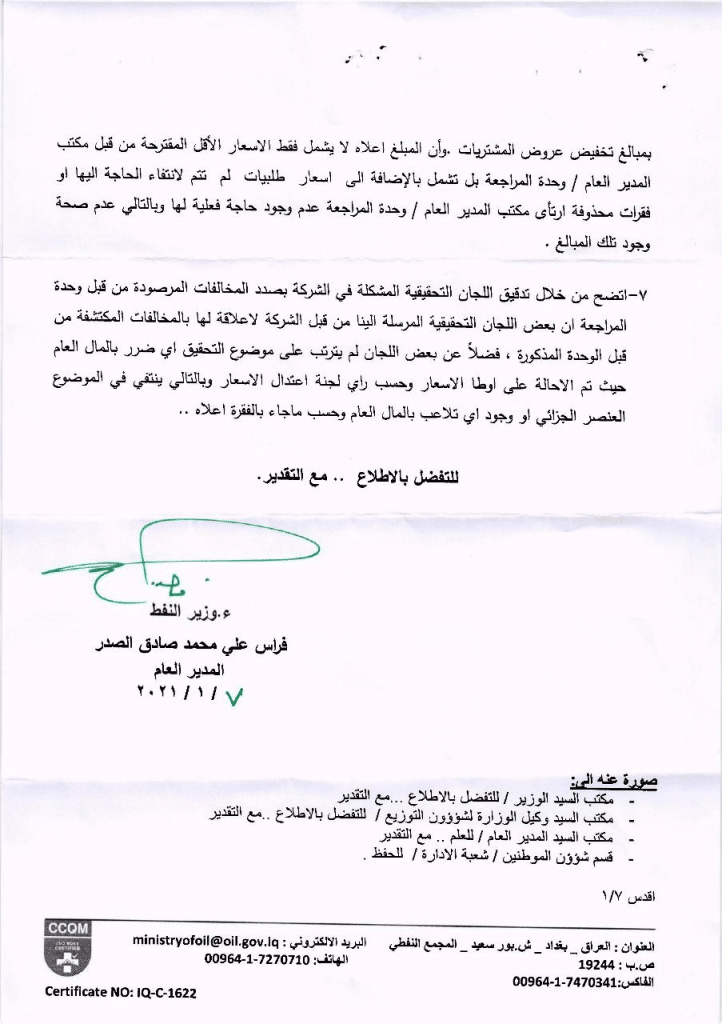 بمبالغ تخفيض عروض المشتريات .وأن المبلغ اعلاه لا يشمل فقط الاسعار الأقل المقترحة من قبل مكتب
المدير العام / وحدة المراجعة بل تشمل بالإضافة الى اسعار طلبيات لم تتم لانتفاء الحاجة اليها او
فقرات محذوفة ارتأى مكتب المدير العام / وحدة المراجعة عدم وجود حاجة فعلية لها وبالتالي عدم صحة
وجود تلك المبالغ .
٧-اتضح من خلال تدقيق اللجان التحقيقية المشكلة في الشركة بصدد المخالفات المرصودة من قبل وحدة
المراجعة ان بعض اللجان التحقيقية المرسلة الينا من قبل الشركة لاعلاقة لها بالمخالفات المكتشفة من
قبل الوحدة المذكورة ، فضلاً عن بعض اللجان لم يترتب على موضوع التحقيق اي ضرر بالمال العام
حيث تم الاحالة على اوطا الاسعار وحسب راي لجنة اعتدال الاسعار وبالتالي ينتفي في الموضوع
العنصر الجزائي او وجود اي تلاعب بالمال العام وحسب ماجاء بالفقرة اعلاه ..
للتفضل بالاطلاع .. مع التقدير.
ع.وزير النفط
فراس علي محمد صادق الصدر
المدير العام
٧ / ١ / ٢٠٢١
صورة عنه الى:
- مكتب السيد الوزير / للتفضل بالاطلاع ...مع التقدير
- مكتب السيد وكيل الوزارة لشؤوون التوزيع / للتفضل بالاطلاع ..مع التقدير
- مكتب السيد المدير العام / للعلم .. مع التقدير
- قسم شؤؤن الموطنين / شعبة الادارة / للحفظ .
اقدس ١/٧
العنوان : العراق _ بغداد _ ش.بور سعيد _ المجمع النفطي
ص.ب : 19244
الفاكس:00964-1-7470341
البريد الالكتروني : ministryofoil@oil.gov.iq
الهاتف: 00964-1-7270710
CCQM
ISO 9001
CERTIFIED
Certificate NO: IQ-C-1622